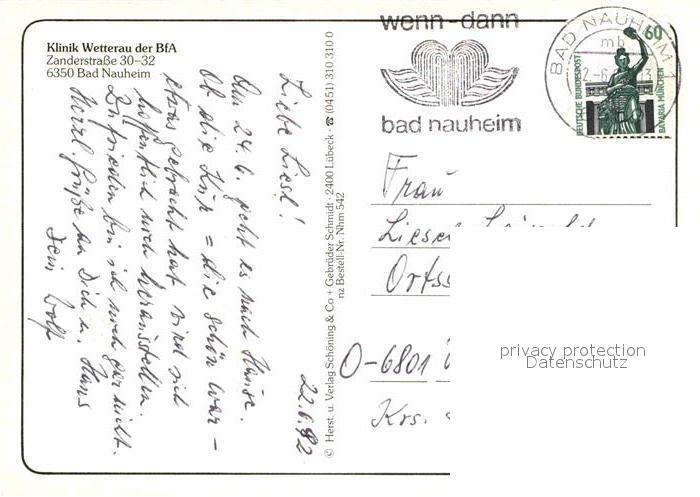 Klinik Wetterau der BfA
Zanderstraße 30–32
6350 Bad Nauheim
wenn-dann
bad nauheim
BAD NAUHEIM 1
mb
60
DEUTSCHE BUNDESPOST
BAVARIA MÜNCHEN
22.6.92
Liebe Liesl!
Am 24.6. geht es nach Hause.
Ob die Kur = die schön war –
etwas gebracht hat wird sich
hoffentlich noch herausstellen.
Zufrieden bin ich noch gar nicht.
Herzl. Grüße an Dich u. Hans
Dein Wolf
© Herst. u. Verlag Schöning & Co + Gebrüder Schmidt · 2400 Lübeck · ☎ (0451) 310 310 0
nz Bestell-Nr. Nhm 542
Frau
O-6801
Krs.
privacy protection
Datenschutz